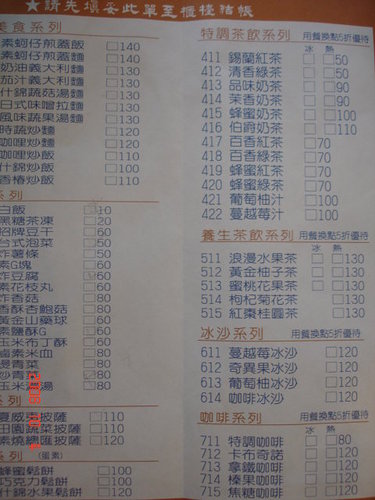 ★請先填妥此單至櫃檯結帳
美食系列
素蚵仔煎蓋飯 □140
素蚵仔煎蓋麵 □140
奶油義大利麵 □130
茄汁義大利麵 □130
什錦蔬菇湯麵 □130
日式味噌拉麵 □130
風味蔬果湯麵 □130
時蔬炒麵 □120
咖哩炒麵 □120
咖哩炒飯 □110
什錦炒飯 □100
香椿炒飯 □110
系列
白飯 □10
黑糖茶凍 □20
招牌豆干 □60
台式泡菜 □50
炸薯條 □50
素G塊 □60
炸豆腐 □60
素花枝丸 □60
炸香菇 □80
香酥杏鮑菇 □80
黃金山藥球 □60
素鹽酥G □60
玉米布丁酥 □60
滷素米血 □80
燙青菜 □80
炒青菜 □80
玉米濃湯 □80
系列
夏威夷披薩 □110
田園蔬菜披薩 □110
素燒總匯披薩 □120
系列 (蛋素)
蜂蜜鬆餅 □100
巧克力鬆餅 □100
什錦水果鬆餅 □120
特調茶飲系列 用餐換點5折優待
冰 熱
411 錫蘭紅茶 □ □50
412 清香綠茶 □ □50
413 品味奶茶 □ □90
414 茉香奶茶 □ □90
415 蜂蜜奶茶 □ □100
416 伯爵奶茶 □ □110
417 百香紅茶 □70
418 百香綠茶 □70
419 蜂蜜紅茶 □70
420 蜂蜜綠茶 □70
421 葡萄柚汁 □100
422 蔓越莓汁 □100
養生茶飲系列 用餐換點5折優待
冰 熱
511 浪漫水果茶 □ □130
512 黃金柚子茶 □ □130
513 蜜桃花果茶 □ □130
514 枸杞菊花茶 □130
515 紅棗桂圓茶 □130
冰沙系列 用餐換點5折優待
611 蔓越莓冰沙 □120
612 奇異果冰沙 □120
613 葡萄柚冰沙 □120
614 咖啡冰沙 □120
咖啡系列 用餐換點5折優待
冰 熱
711 特調咖啡 □ □80
712 卡布奇諾 □ □120
713 拿鐵咖啡 □ □120
714 榛果咖啡 □ □120
715 焦糖咖啡 □ □120